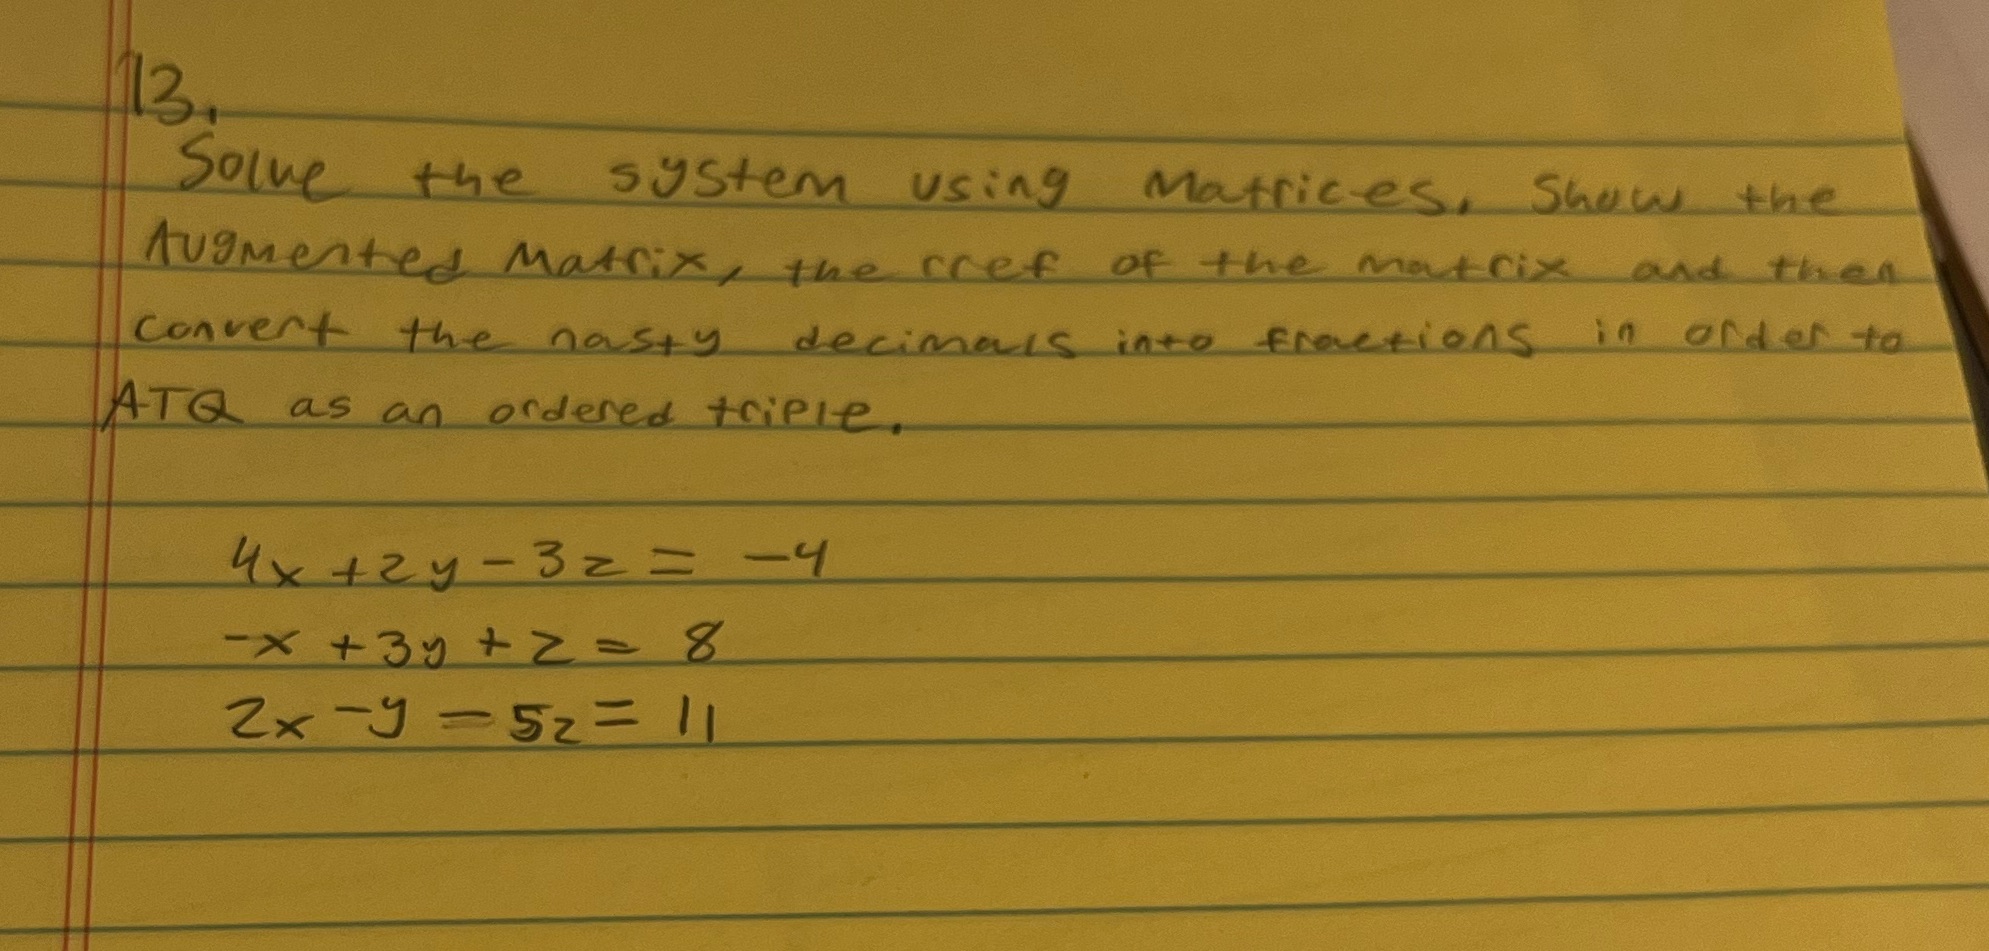 13.
Solve the system using Matrices. Show the
Augmented Matrix, the rref of the matrix and then
convert the nasty decimals into fractions in order to
ATQ as an ordered triple.
4x + 2y - 3z = -4
-x + 3y + z = 8
2x - y - 5z = 11